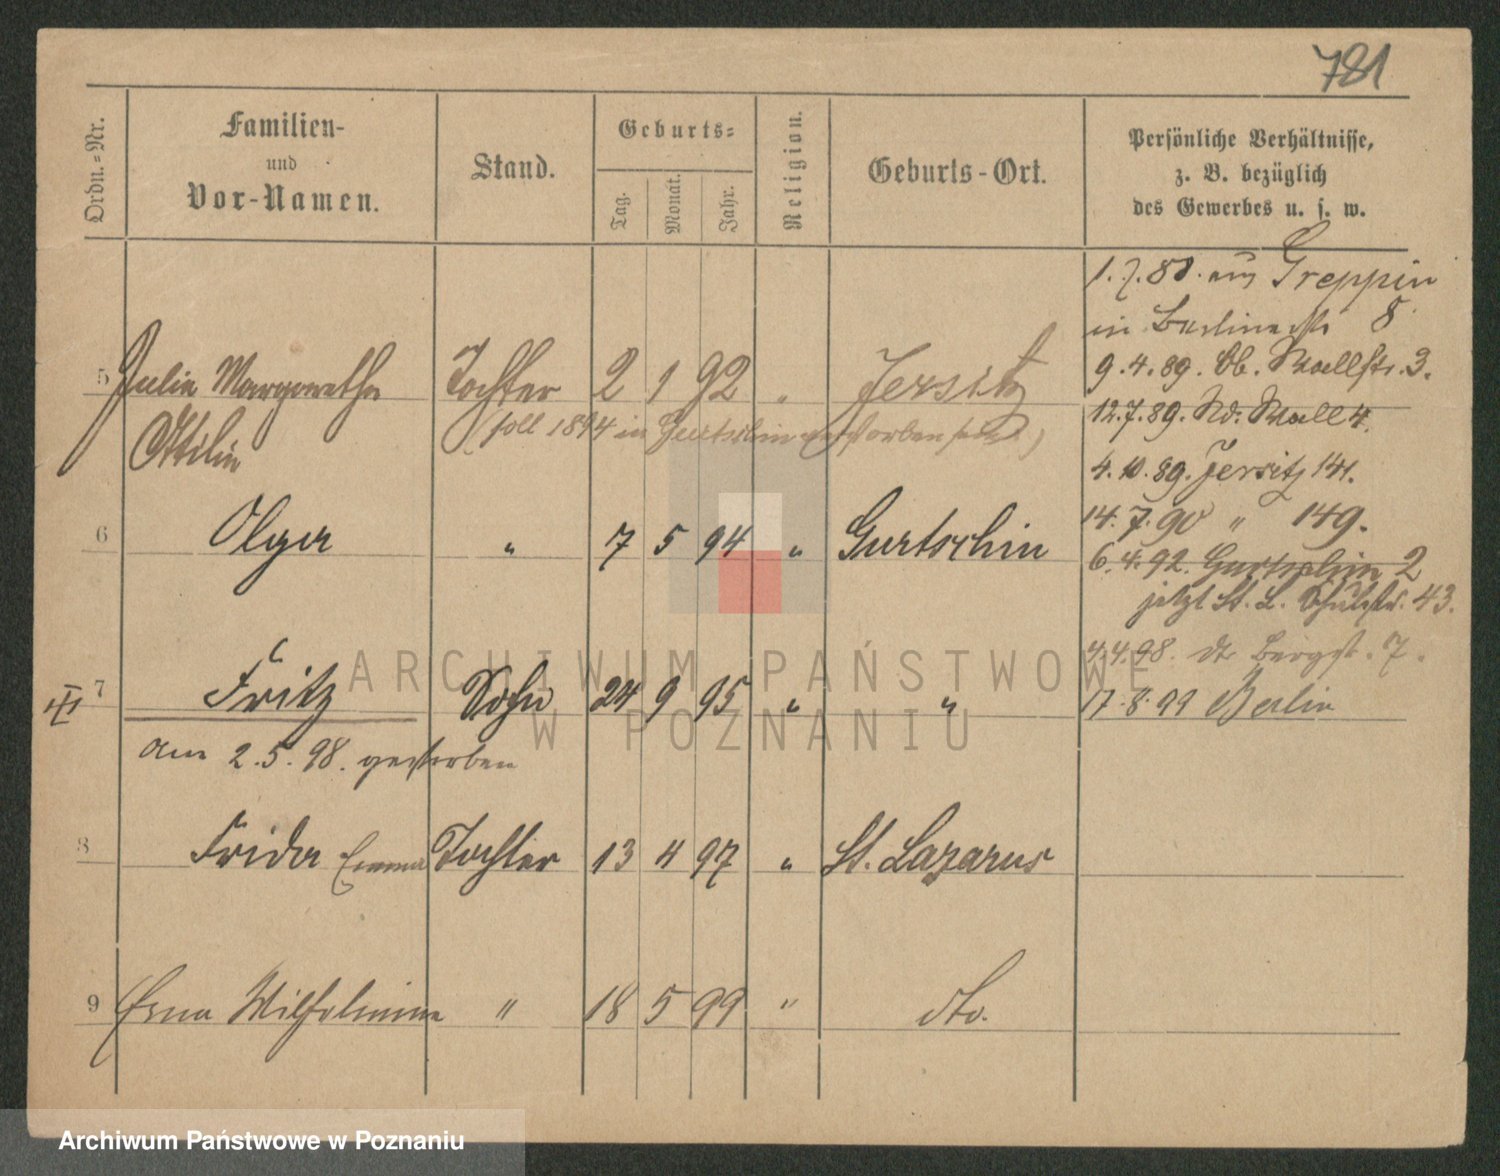 781
Ordn.=Nr.
Familien-
und
Vor-Namen.
Stand.
Geburts=
Tag.
Monat.
Jahr.
Religion.
Geburts-Ort.
Persönliche Verhältnisse,
z. B. bezüglich
des Gewerbes u. s. w.
1.7.88. aus Greppin
in Berlinerstr 8
9.4.89. Ob. Wallstr. 3.
12.7.89. Nd. Wall 4.
4.10.89. Jersitz 141.
14.7.90 " 149.
6.4.92. Gurtschin 2
jetzt St. L. Schulstr. 43.
4.4.98. Bergstr. 7.
17.8.99 Berlin
5 Julie Margarethe Tochter 2 1 92 " Jersitz
Ottilie (soll 1894 in Gurtschin gestorben sein.)
6 Olga " 7 5 94 " Gurtschin
7 Fritz Sohn 24 9 95 " "
am 2.5.98. gestorben
8 Frida Emma Tochter 13 4 97 " St. Lazarus
9 Erna Wilhelmine " 18 5 99 " dto.
ARCHIWUM PAŃSTWOWE
W POZNANIU
Archiwum Państwowe w Poznaniu